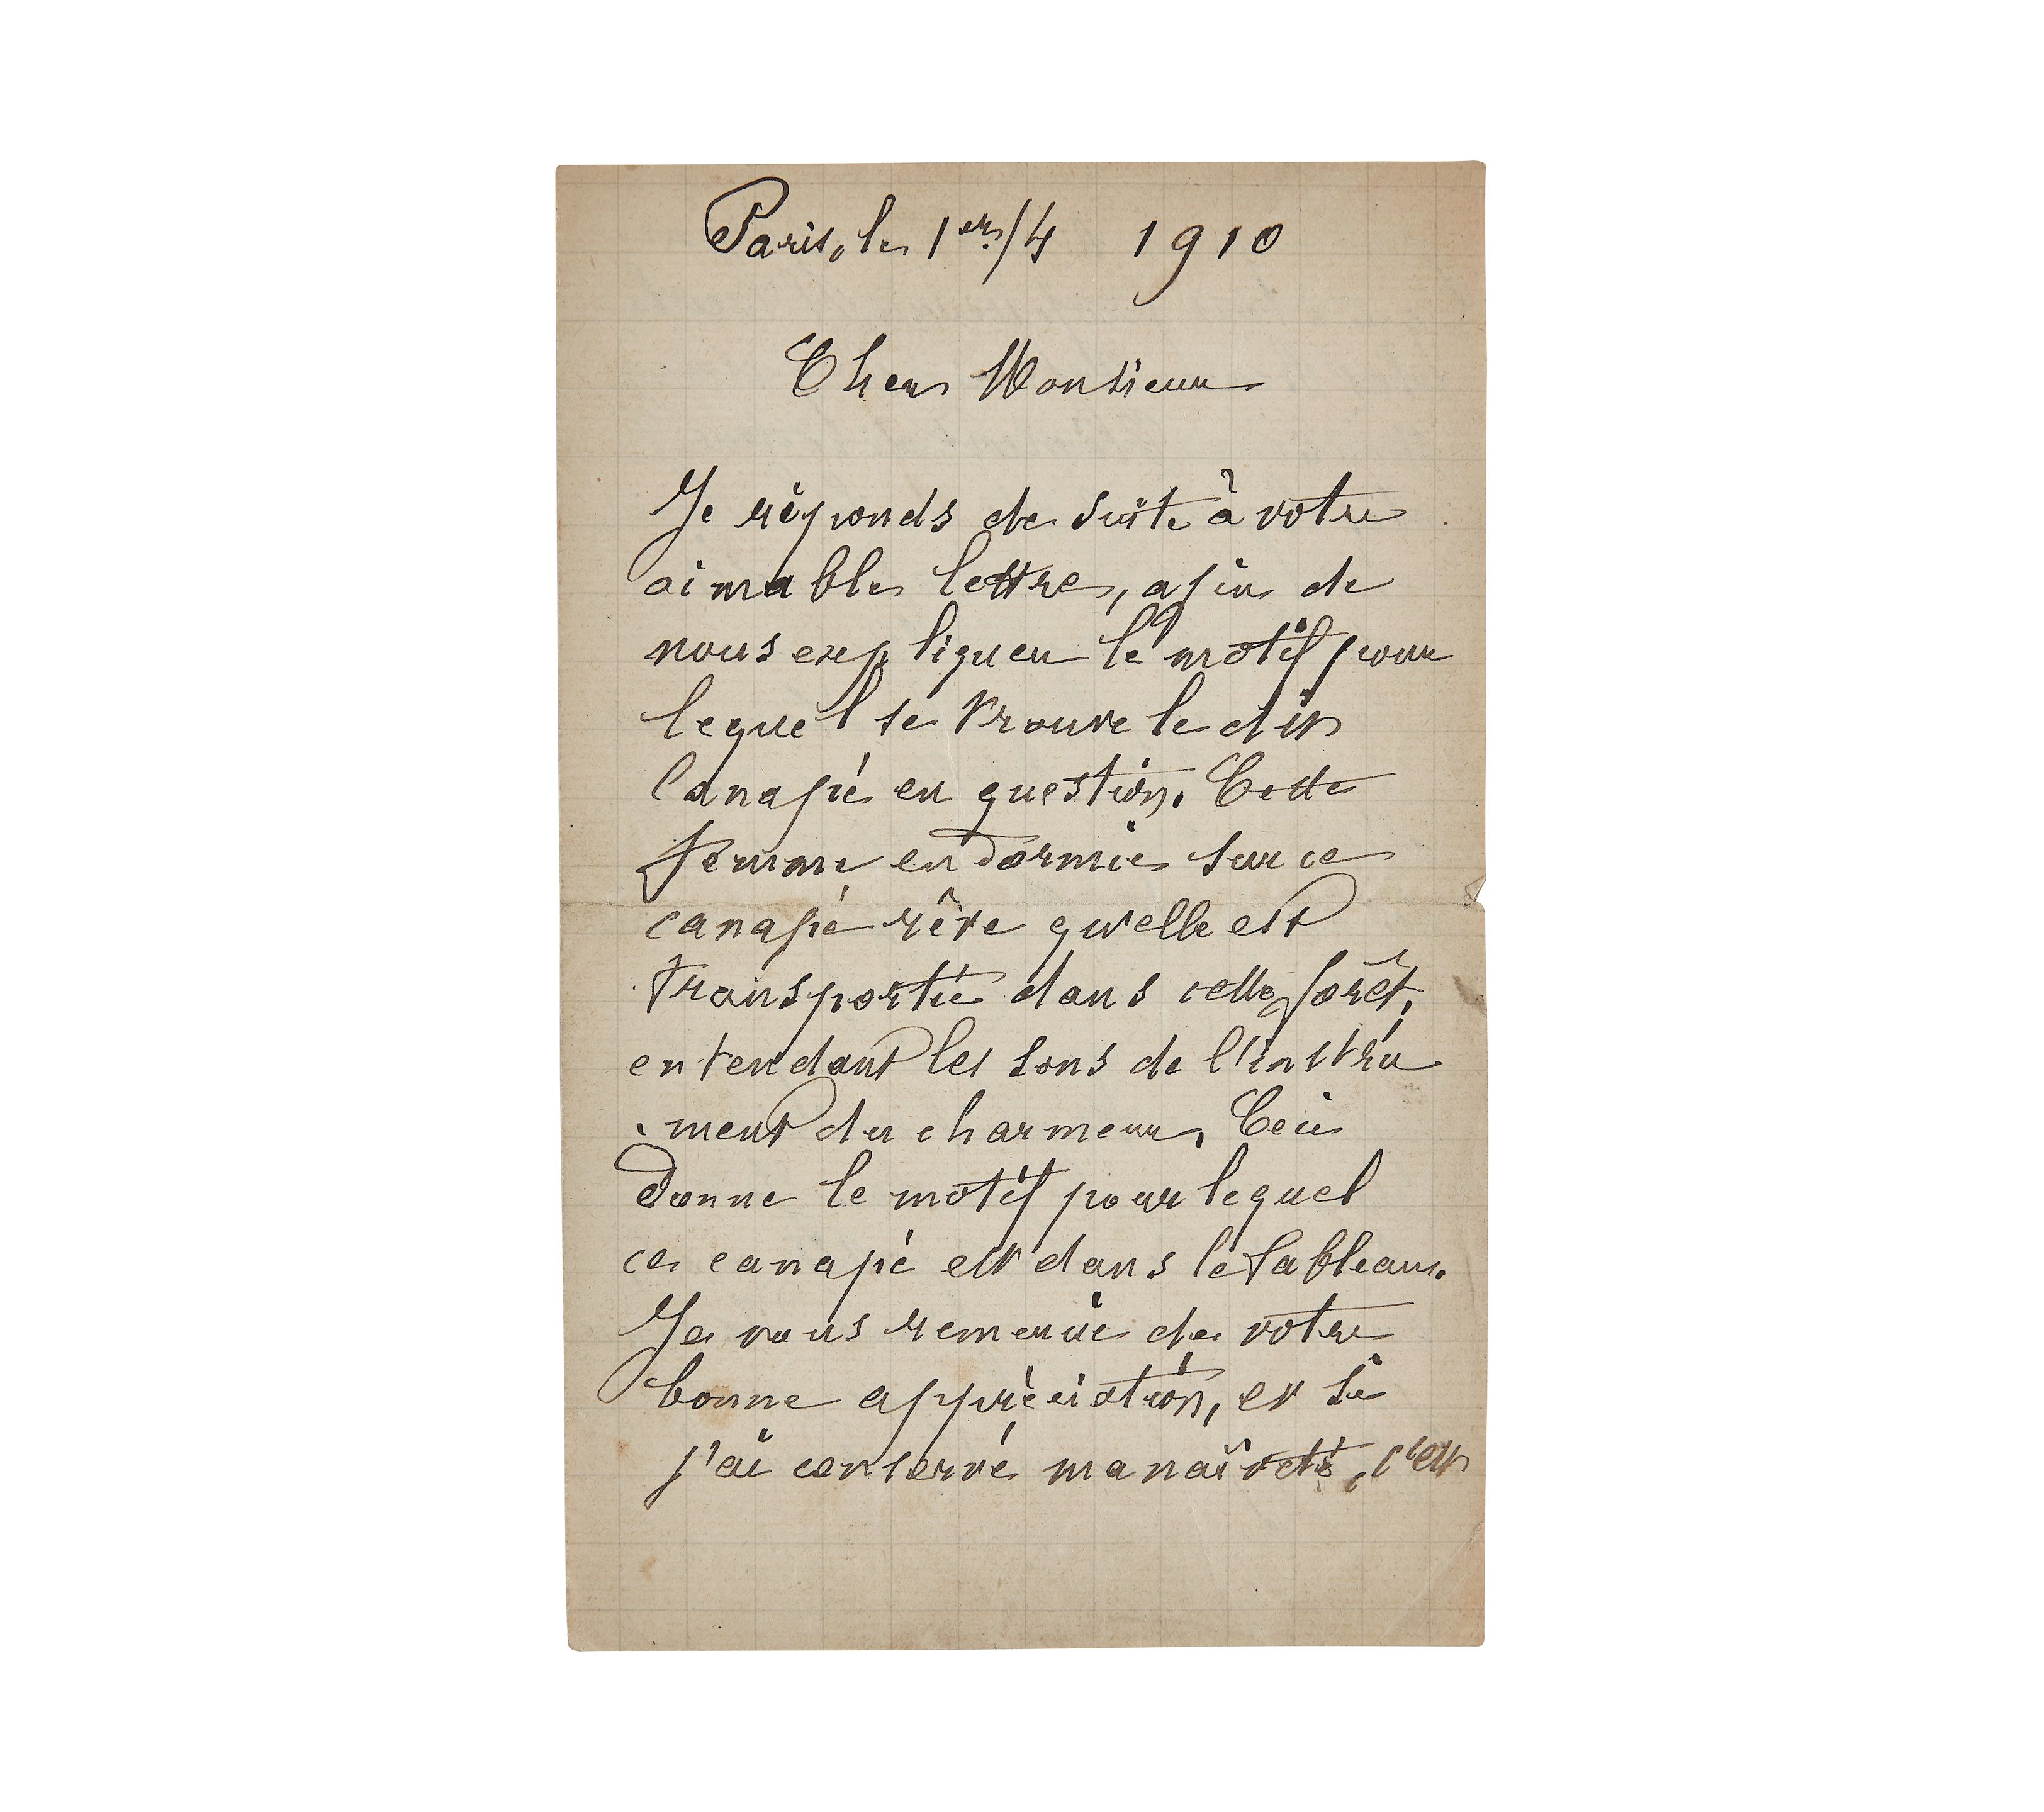 Paris, le 1er/4 1910
Cher Monsieur
Je réponds de suite à votre
aimable lettre, afin de
vous expliquer le motif pour
lequel se trouve le dit
canapé en question. Cette
femme endormie sur ce
canapé rêve qu'elle est
transportée dans cette forêt,
entendant les sons de l'instru
ment du charmeur. Ceci
donne le motif pour lequel
ce canapé est dans le tableau.
Je vous remercie de votre
bonne appréciation, et si
j'ai conservé ma naïveté, c'est